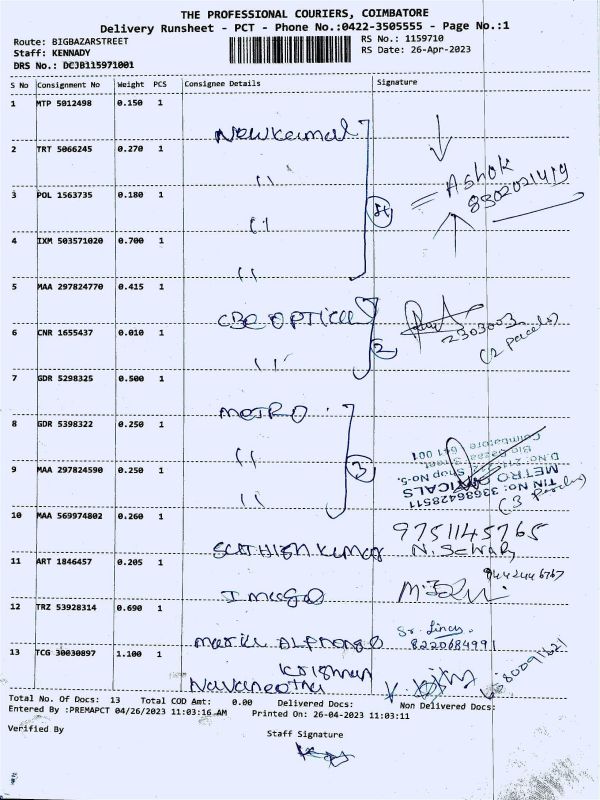 THE PROFESSIONAL COURIERS, COIMBATORE
Delivery Runsheet - PCT - Phone No.:0422-3505555 - Page No.:1
Route: BIGBAZARSTREET
RS No.: 1159710
Staff: KENNADY
RS Date: 26-Apr-2023
DRS No.: DCJB115971001
S No Consignment No Weight PCS Consignee Details Signature
1 MTP 5012498 0.150 1
Newkamal
2 TRT 5066245 0.270 1
" Ashok
3 POL 1563735 0.180 1
" 4
4 IXM 503571020 0.700 1
"
5 MAA 297824770 0.415 1
CBE OPTICAL
2303003
6 CNR 1655437 0.010 1
" 2 (2 Parcels)
7 GDR 5298325 0.500 1
METRO
8 GDR 5398322 0.250 1
" 3
TIN NO: 33686428511
METRO OPTICALS
Shop No-5,
Big Bazaar Street
Coimbatore 641 001
9 MAA 297824590 0.250 1
" (3 Parcels)
10 MAA 569974802 0.260 1
9751145765
Sathish Kumar
11 ART 1846457 0.205 1
9442446767
Image
12 TRZ 53928314 0.690 1
Sr. Lincy
8220684991
13 TCG 30030897 1.100 1
Krishnan
Navaneetha
Total No. Of Docs: 13 Total COD Amt: 0.00 Delivered Docs: Non Delivered Docs:
Entered By :PREMAPCT 04/26/2023 11:03:16 AM Printed On: 26-04-2023 11:03:11
Verified By
Staff Signature